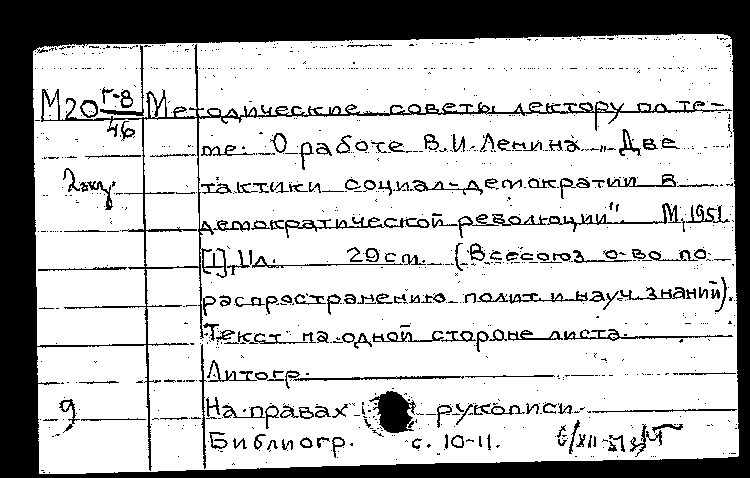 М20 Г-8/46 Методические советы лектору по те-
ме: О работе В.И. Ленина „Две
2 экз. тактики социал-демократии в
демократической революции". М, 1951.
[1], 11л. 29 cm. (Всесоюз. о-во по
распространению полит. и науч. знаний).
Текст на одной стороне листа.
Литогр.
9 На правах рукописи.
Библиогр. с. 10-11.